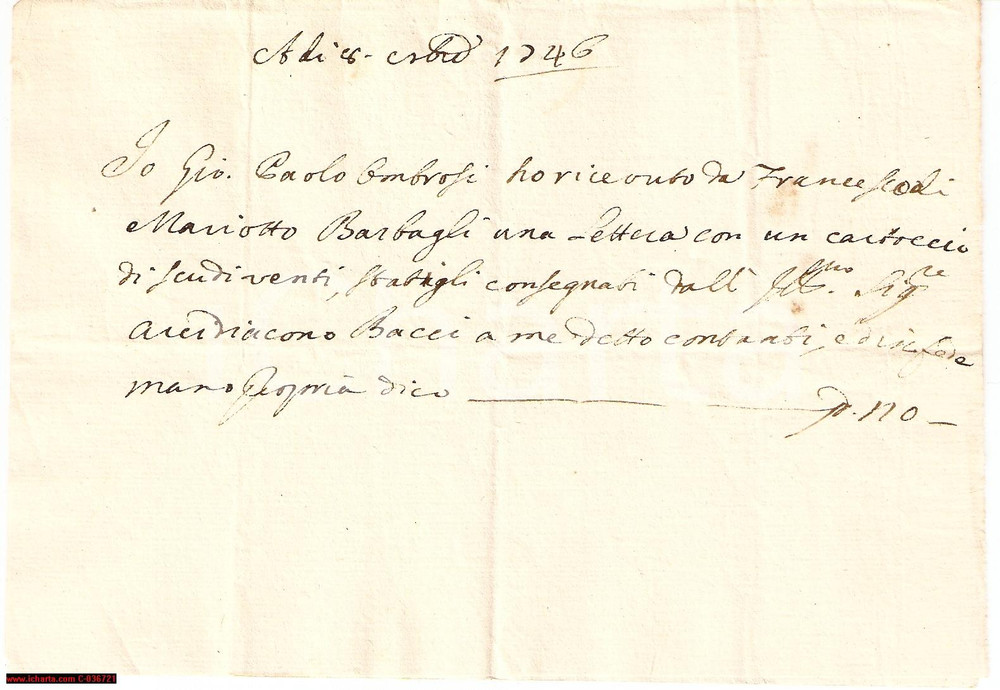 Adi 8 - 1746
Io Gio. Paolo Ombrosi ho riceouto da Francesco di
Mariotto Barbagli una Lettera con un cartoccio
di scudi venti, statigli consegnati dall' Ill.mo Sig.re
Arcidiacono Bacci a me detto contanti, e di in fede
mano propria dico ——— 20 —
www.icharta.com C-036721